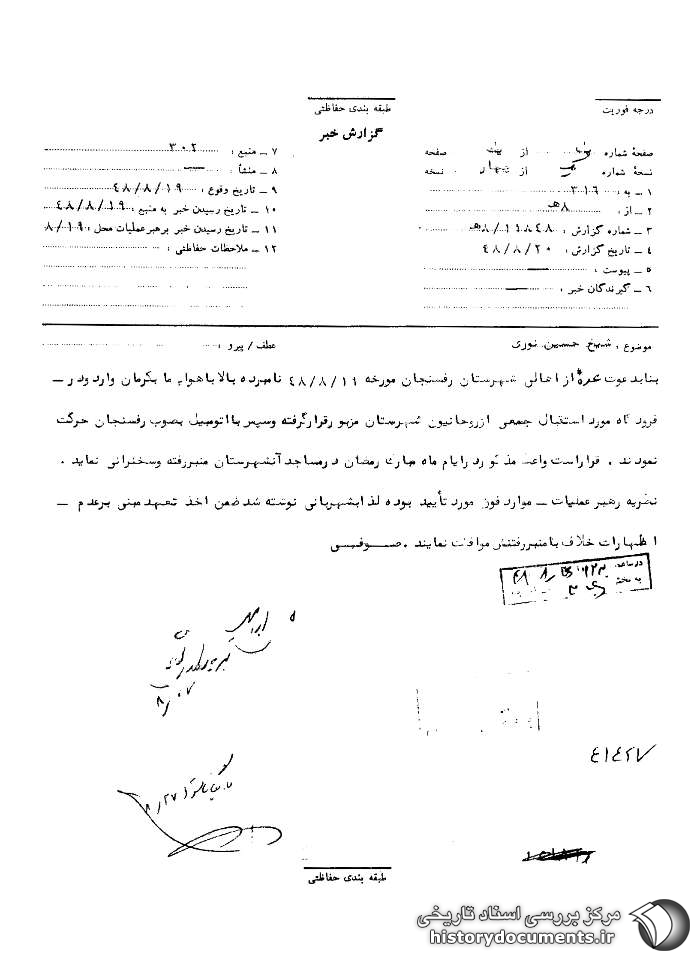 درجه فوریت
طبقه بندی حفاظتی
گزارش خبر
صفحهٔ شماره یک از یک صفحه
نسخهٔ شماره یک از چهار نسخه
۱ ـ به : ۳۱۶
۲ ـ از : ۸هـ
۳ ـ شماره گزارش : ۱۱۸۴۸/۸هـ
۴ ـ تاریخ گزارش : ۴۸/۸/۲۰
۵ ـ پیوست :
۶ ـ گیرندگان خبر :
۷ ـ منبع : ۳۰۲
۸ ـ منشأ :
۹ ـ تاریخ وقوع : ۴۸/۸/۱۹
۱۰ ـ تاریخ رسیدن خبر به منبع : ۴۸/۸/۱۹
۱۱ ـ تاریخ رسیدن خبر برهبر عملیات محل : ۸/۱۹
۱۲ ـ ملاحظات حفاظتی :
موضوع : شیخ حسین نوری
عطف / پیرو :
بنابدعوت عدهٔ از اهالی شهرستان رفسنجان مورخه ۴۸/۸/۱۹ نامبرده بالا باهواپیما بکرمان وارد و در ـ
فرودگاه مورد استقبال جمعی ازروحانیون شهرستان مزبور قرارگرفته وسپس با اتومبیل بصوب رفسنجان حرکت
نمودند . قراراست واعظ مذکور در ایام ماه مبارک رمضان درمساجد آنشهرستان منبر رفته وسخنرانی نماید .
نظریه رهبر عملیات ـ موارد فوق مورد تأیید بوده لذا بشهربانی نوشته شد ضمن اخذ تعهد مبنی برعدم ـ
اظهارات خلاف با منبر رفتنش موافقت نمایند . صوفیسی
در ساعت
به بخش
۴۱۴۲۷
طبقه بندی حفاظتی
مرکز بررسی اسناد تاریخی
historydocuments.ir